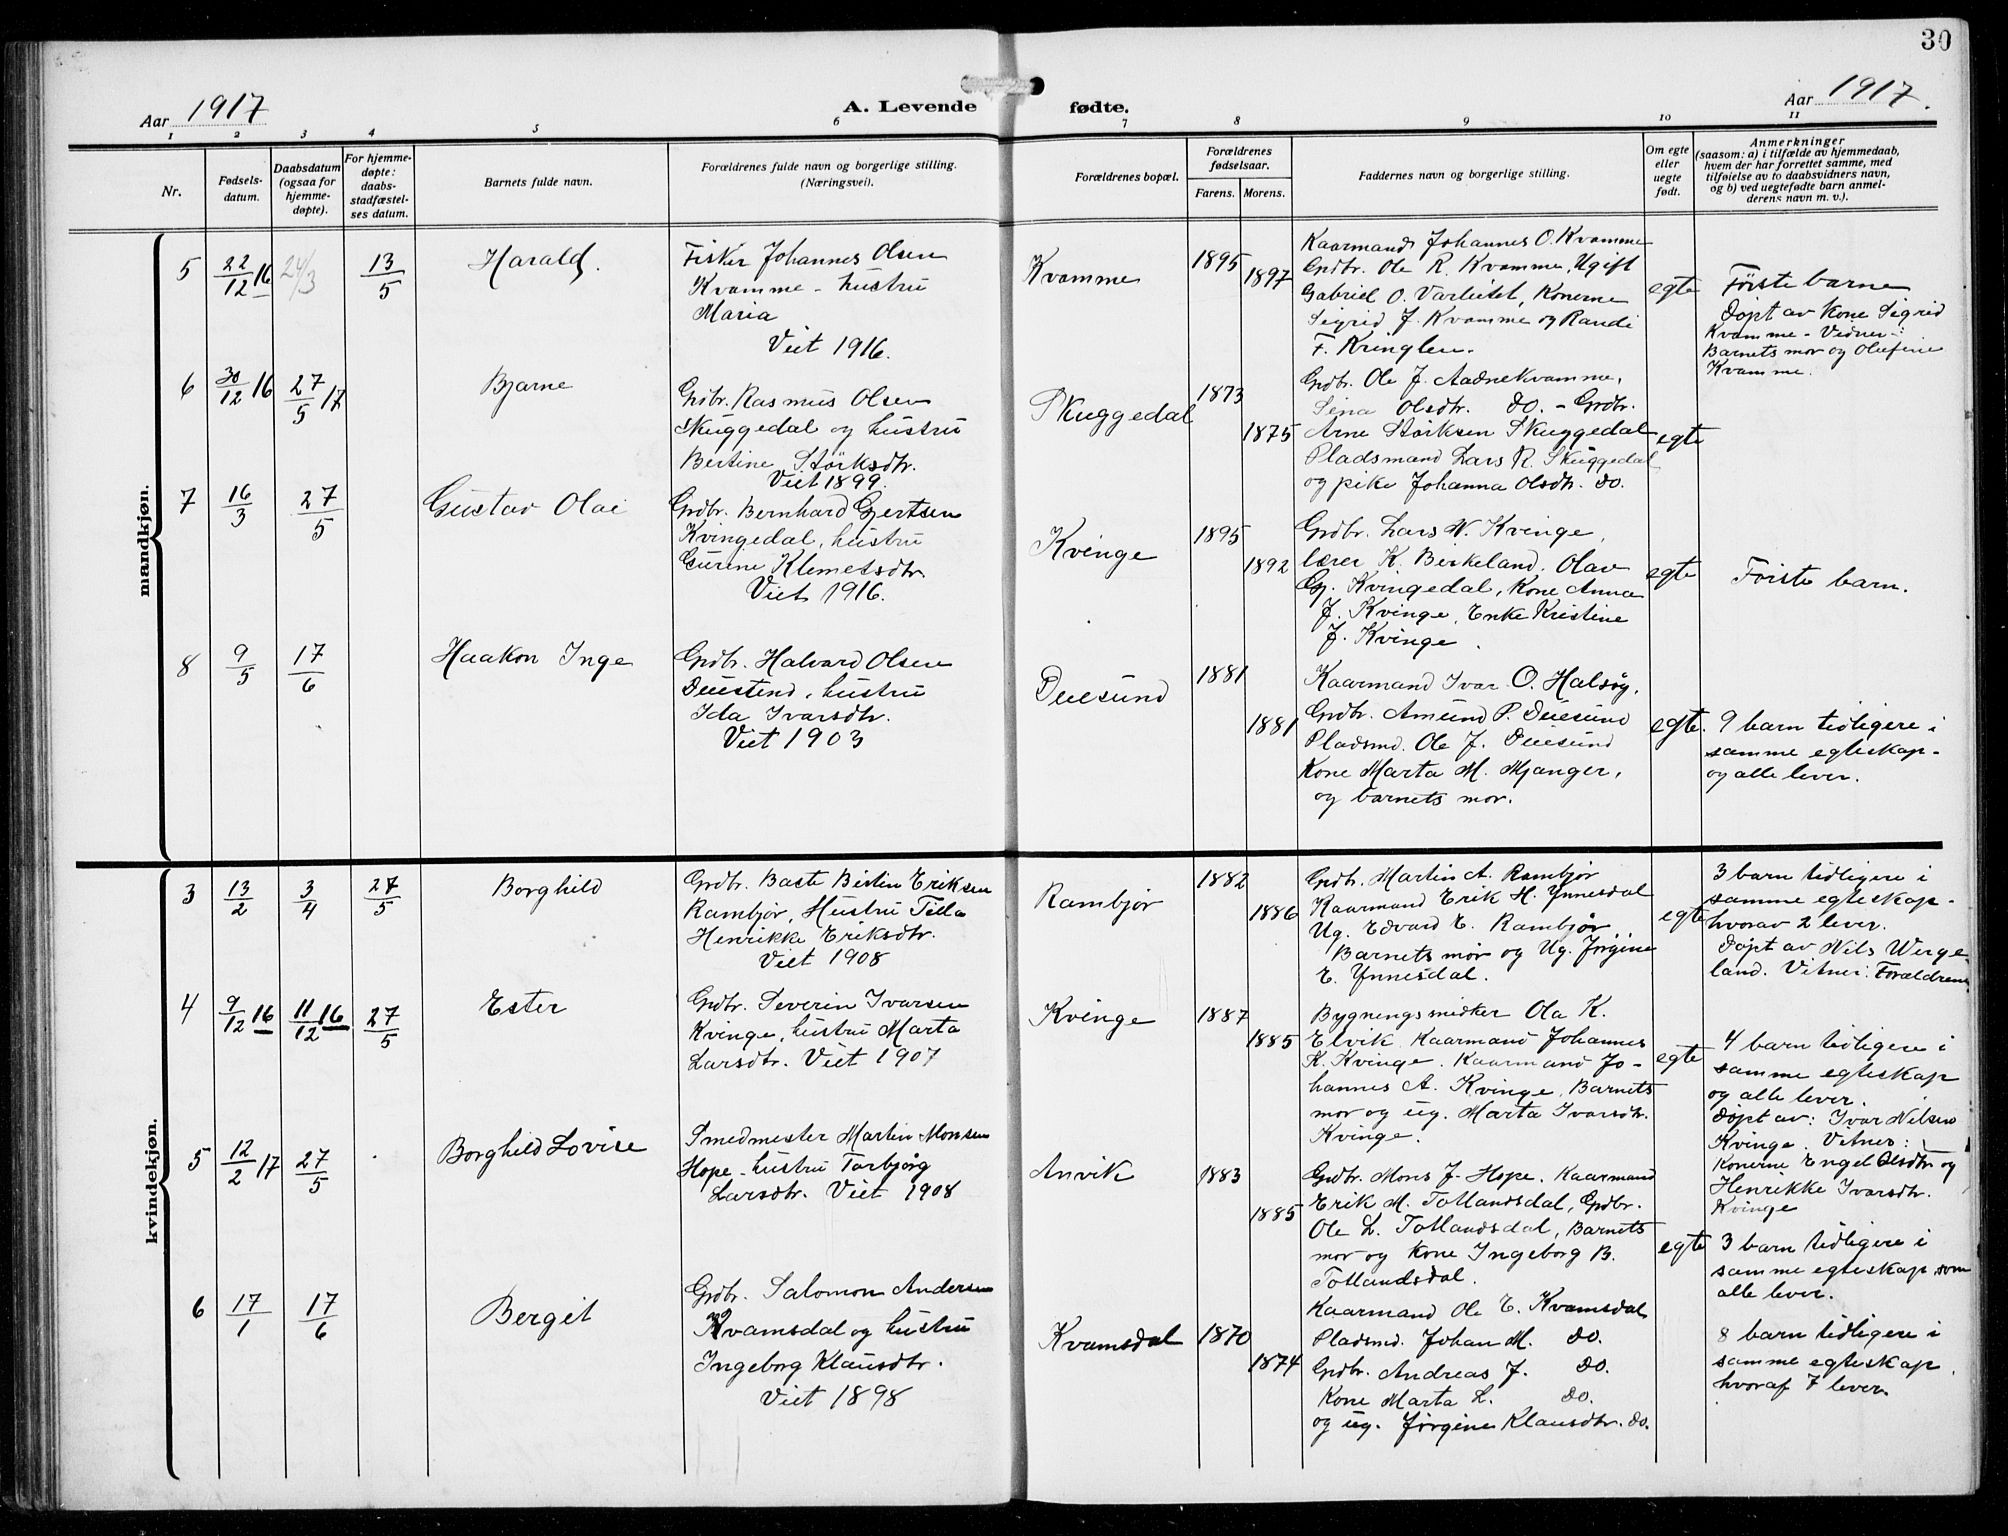 30
Aar 1917
A. Levende fødte.
Aar 1917.
1 2 3 4 5 6 7 8 9 10 11
Nr.
Fødsels-
datum.
Daabsdatum
(ogsaa for
hjemme-
døpte).
For hjemme-
døpte:
daabs-
stadfæstel-
ses datum.
Barnets fulde navn.
Forældrenes fulde navn og borgerlige stilling.
(Næringsvei).
Forældrenes bopæl.
Forældrenes
fødselsaar.
Farens. Morens.
Faddernes navn og borgerlige stilling.
Om egte
eller
uegte
født.
Anmerkninger
(saasom: a) i tilfælde av hjemmedaab,
hvem der har forrettet samme, med
tilføielse av to daabsvidners navn,
og b) ved uegtefødte barn anmel-
derens navn m. v.).
mandkjøn.
5
22/12 16
24/3
13/5
Harald.
Fisker Johannes Olsen
Kvamme - hustru
Maria
Viet 1916.
Kvamme
1895
1897
Kaarmand Johannes O. Kvamme
Grdbr. Ole R. Kvamme, Ugift
Gabriel O. Varleitet, Konerne
Sigrid J. Kvamme og Randi
F. Kringlen.
egte
Første barn
Døpt av Kone Sigrid
Kvamme - Vidner:
Barnets mor og Olufine
Kvamme.
6
30/12 16
27/5 17
Bjarne
Grdbr. Rasmus Olsen
Skuggedal og hustru
Bertine Størksdtr.
Viet 1899.
Skuggedal
1873
1875
Grdbr. Ole J. Aadnekvamme,
Sina Olsdtr. do. - Grdbr.
Arne Størksen Skuggedal
Pladsmand Lars R. Skuggedal
og pike Johanna Olsdtr. do.
egte
7
16/3
27/5
Gustav Olai
Grdbr. Bernhard Gjertsen
Kvingedal, hustru
Gurine Klemetsdtr.
Viet 1916.
Kvinge
1895
1892
Grdbr. Lars N. Kvinge,
lærer K. Birkeland. Olav
Gj. Kvingedal, Kone Anna
J. Kvinge, Enke Kristine
J. Kvinge.
egte
Første barn.
8
9/5
17/6
Haakon Inge
Grdbr. Halvard Olsen
Duesund, hustru
Ida Ivarsdtr.
Viet 1903
Duesund
1881
1881
Kaarmand Ivar O. Halsøy,
Grdbr. Amund P. Duesund
Pladsmd. Ole J. Duesund
Kone Marta M. Mjanger,
og barnets mor.
egte.
9 barn tidligere i
samme egteskap -
og alle lever.
kvindekjøn.
3
13/2
3/4
27/5
Borghild
Grdbr. Baste Bertin Eriksen
Rambjør, Hustru Tilla
Henrikke Eriksdtr.
Viet 1908
Rambjør
1882
1886
Grdbr. Martin A. Rambjør
Kaarmand Erik H. Ynnesdal
Ug. Edvard E. Rambjør,
Barnets mor og Ug. Jørgine
E. Ynnesdal.
egte
3 barn tidligere i
samme egteskap -
hvorav 2 lever.
Døpt av Nils Werge-
land. Vitner: Forældrene
4
9/12 16
11/12 16
27/5
Ester
Grdbr. Severin Ivarsen
Kvinge, hustru Marta
Larsdtr. Viet 1907
Kvinge
1887
1885
Bygningsmidker Ola K.
Elvik Kaarmand Johannes
K. Kvinge. Kaarmand Jo-
hannes A. Kvinge, Barnets
mor og ug. Marta Ivarsdtr.
Kvinge.
egte
4 barn tidligere i
samme egteskap
og alle lever.
Døpt av: Ivar Nilsen
Kvinge. Vitner:
Konerne Engel Olsdtr og
Henrikke Ivarsdtr.
Kvinge
5
12/2 17
27/5
Borghild Lovise
Smedmester Martin Monsen
Hope - hustru Torbjørg
Larsdtr. Viet 1908
Anvik
1883
1885
Grdbr. Mons J. Hope. Kaarmand
Erik M. Totlandsdal, Grdbr.
Ole L. Totlandsdal, Barnets
mor og Kone Ingeborg B.
Totlandsdal.
egte
3 barn tidligere i
samme egteskap, som
alle lever.
6
17/1
17/6
Bergit
Grdbr. Salomon Andersen
Kvamsdal og hustru
Ingeborg Klausdtr.
Viet 1898
Kvamsdal
1870
1874
Kaarmand Ole E. Kvamsdal
Pladsmd. Johan M. do.
Grdbr. Andreas J. do.
Kone Marta L. do.
og ug. Jørgine Klausdtr. do.
8 barn tidligere i
samme egteskap,
hvoraf 7 lever.